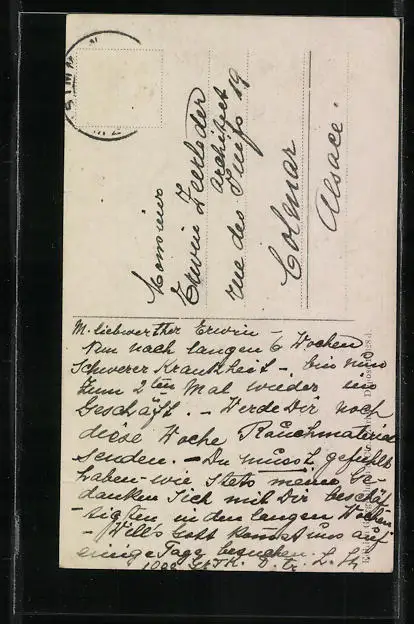 Monsieur
Erwin Zeerleder
architect
rue des Juifs 19
Colmar
Alsace.
M. liebwerther Erwin –
Nun nach langen 6 Wochen
Schwerer Krankheit –. bin nun
zum 2ten Mal wieder im
Geschäft. – Werde Dir noch
diese Woche Rauchmaterial
senden. – Du musst gefühlt
haben – wie stets meine Ge-
danken sich mit Dir beschäf
-tigten in den langen Wochen
– Will's Gott kommst uns auf
einige Tage besuchen.